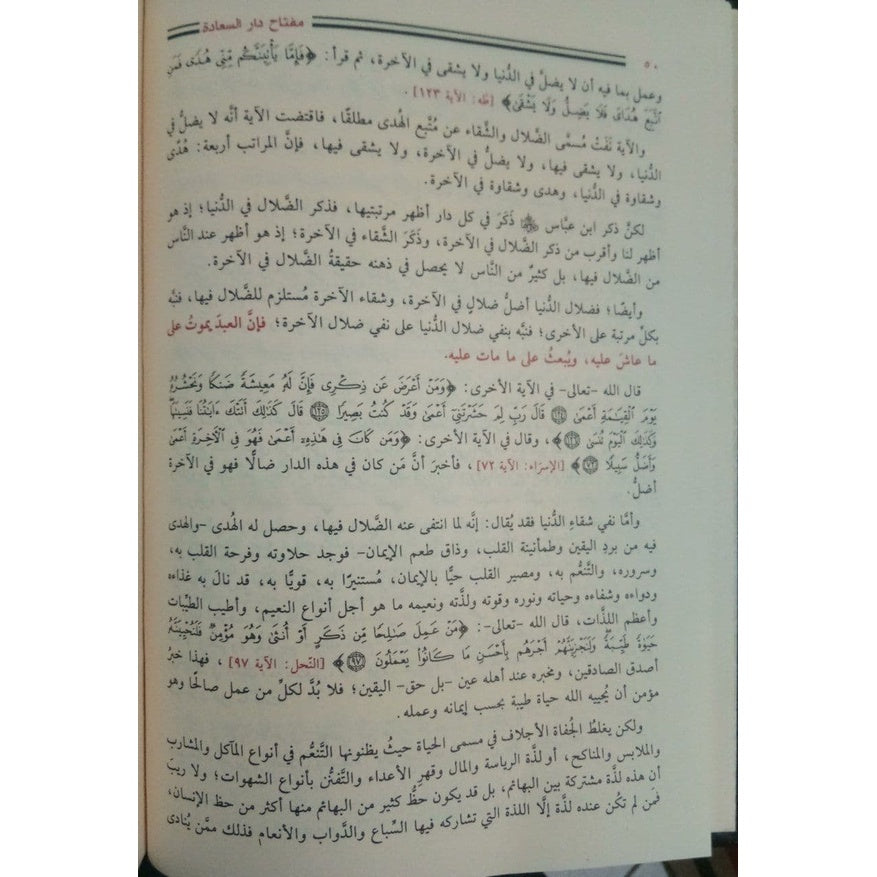 ٥٠
مفتاح دار السعادة
وعمل بما فيه أن لا يضلَّ في الدُّنيا ولا يشقى في الآخرة، ثم قرأ: ﴿فَإِمَّا يَأْتِيَنَّكُم مِّنِّي هُدًى فَمَنِ
ٱتَّبَعَ هُدَايَ فَلَا يَضِلُّ وَلَا يَشْقَىٰ﴾ [طه: الآية ١٢٣].
والآية نَفَتْ مُسمَّى الضَّلال والشَّقاء عن مُتَّبع الهُدى مطلقًا، فاقتضت الآية أنَّه لا يضلُّ في
الدُّنيا، ولا يشقى فيها، ولا يضلُّ في الآخرة، ولا يشقى فيها، فإنَّ المراتب أربعة: هُدًى
وشقاوة في الدُّنيا، وهدى وشقاوة في الآخرة.
لكنَّ ذكر ابن عبَّاس ﷺ ذَكَرَ في كل دار أظهر مرتبتيها، فذكر الضَّلال في الدُّنيا؛ إذ هو
أظهر لنا وأقرب من ذكر الضَّلال في الآخرة، وذَكَرَ الشَّقاء في الآخرة؛ إذ هو أظهر عند النَّاس
من الضَّلال فيها، بل كثيرٌ من النَّاس لا يحصل في ذهنه حقيقةُ الضَّلال في الآخرة.
وأيضًا؛ فضلال الدُّنيا أضلُّ ضلالٍ في الآخرة، وشقاء الآخرة مُستلزم للضَّلال فيها، فنبَّه
بكلِّ مرتبة على الأخرى؛ فنبَّه بنفي ضلال الدُّنيا على نفي ضلال الآخرة؛ فإنَّ العبدَ يموتُ على
ما عاشَ عليه، ويُبعثُ على ما مات عليه.
قال الله -تعالى- في الآية الأخرى: ﴿وَمَنْ أَعْرَضَ عَن ذِكْرِي فَإِنَّ لَهُۥ مَعِيشَةً ضَنكًا وَنَحْشُرُهُۥ
يَوْمَ ٱلْقِيَـٰمَةِ أَعْمَىٰ ١٢٤ قَالَ رَبِّ لِمَ حَشَرْتَنِيٓ أَعْمَىٰ وَقَدْ كُنتُ بَصِيرًا ١٢٥ قَالَ كَذَٰلِكَ أَتَتْكَ ءَايَـٰتُنَا فَنَسِيتَهَا
وَكَذَٰلِكَ ٱلْيَوْمَ تُنسَىٰ ١٢٦﴾، وقال في الآية الأخرى: ﴿وَمَن كَانَ فِي هَـٰذِهِۦٓ أَعْمَىٰ فَهُوَ فِي ٱلْـَٔاخِرَةِ أَعْمَىٰ
وَأَضَلُّ سَبِيلًا ٧٢﴾ [الإسرَاء: الآية ٧٢]، فأخبرَ أنَّ مَن كان في هذه الدار ضالًّا فهو في الآخرة
أضلُّ.
وأمَّا نفي شقاءِ الدُّنيا فقد يُقال: إنَّه لما انتفى عنه الضَّلال فيها، وحصل له الهُدى -والهدى
فيه من بردِ اليقين وطمأنينة القلب، وذاق طعم الإيمان- فوجد حلاوته وفرحة القلب به،
وسروره، والتَّنعُّم به، ومصير القلب حيًّا بالإيمان، مُستنيرًا به، قويًّا به، قد نالَ به غذاءه
ودواءه وشفاءه وحياته ونوره وقوته ولذَّته ونعيمه ما هو أجل أنواع النعيم، وأطيب الطيِّبات
وأعظم اللذَّات، قال الله -تعالى-: ﴿مَنْ عَمِلَ صَـٰلِحًا مِّن ذَكَرٍ أَوْ أُنثَىٰ وَهُوَ مُؤْمِنٌ فَلَنُحْيِيَنَّهُۥ
حَيَوٰةً طَيِّبَةً وَلَنَجْزِيَنَّهُمْ أَجْرَهُم بِأَحْسَنِ مَا كَانُوا۟ يَعْمَلُونَ ٩٧﴾ [النّحل: الآية ٩٧]، فهذا خبرُ
أصدق الصادقين، ومخبره عند أهله عين -بل حق- اليقين؛ فلا بُدَّ لكلِّ من عمل صالحًا وهو
مؤمن أن يُحييه الله حياة طيبة بحسب إيمانه وعمله.
ولكن يغلطُ الجُفاة الأجلاف في مسمى الحياة حيثُ يظنونها التَّنعُّم في أنواع المآكل والمشارب
والملابس والمناكح، أو لذَّة الرياسة والمال وقهرِ الأعداء والتَّفنُّن بأنواع الشهوات؛ ولا ريبَ
أن هذه لذَّة مشتركة بين البهائم، بل قد يكون حظُّ كثير من البهائم منها أكثر من حظ الإنسان،
فمَن لم تكُن عنده لذَّة إلَّا اللذة التي تشاركه فيها السِّباع والدَّواب والأنعام فذلك ممَّن يُنادى